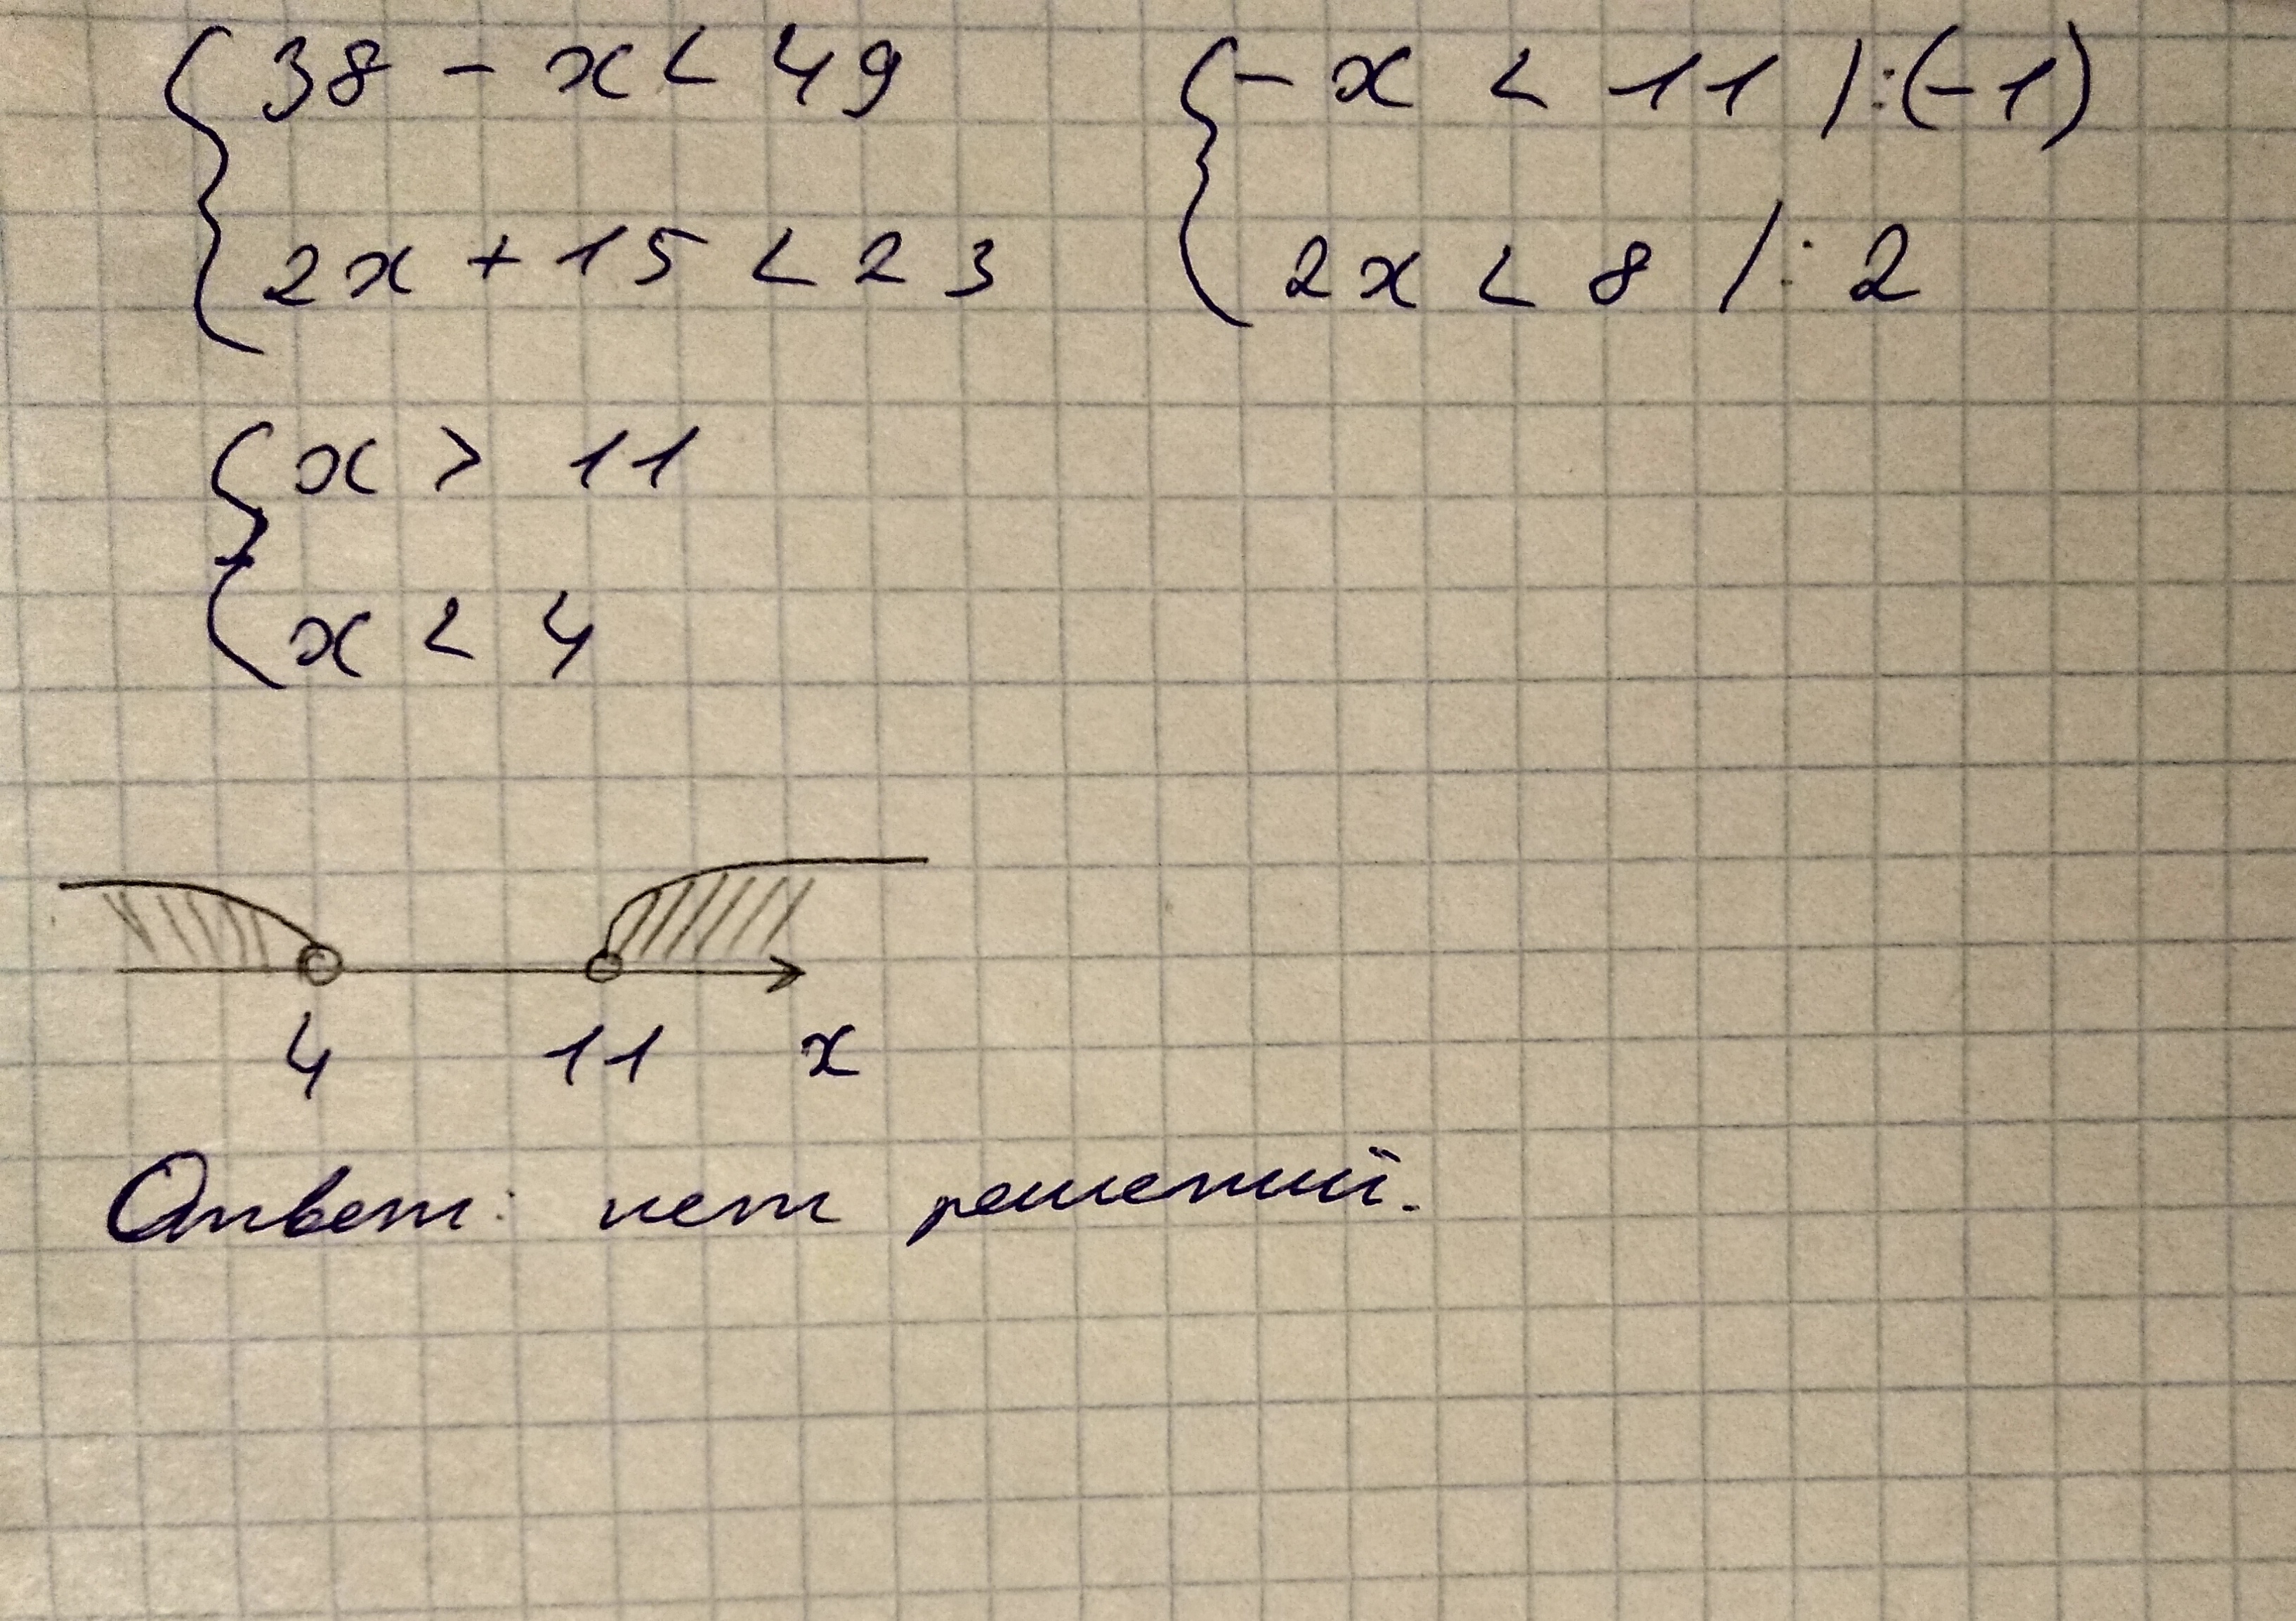 { 38 - x < 49 { - x < 11 /:(-1)
2x + 15 < 23 2x < 8 /: 2
{ x > 11
x < 4
4 11 x
Ответ: нет решений.